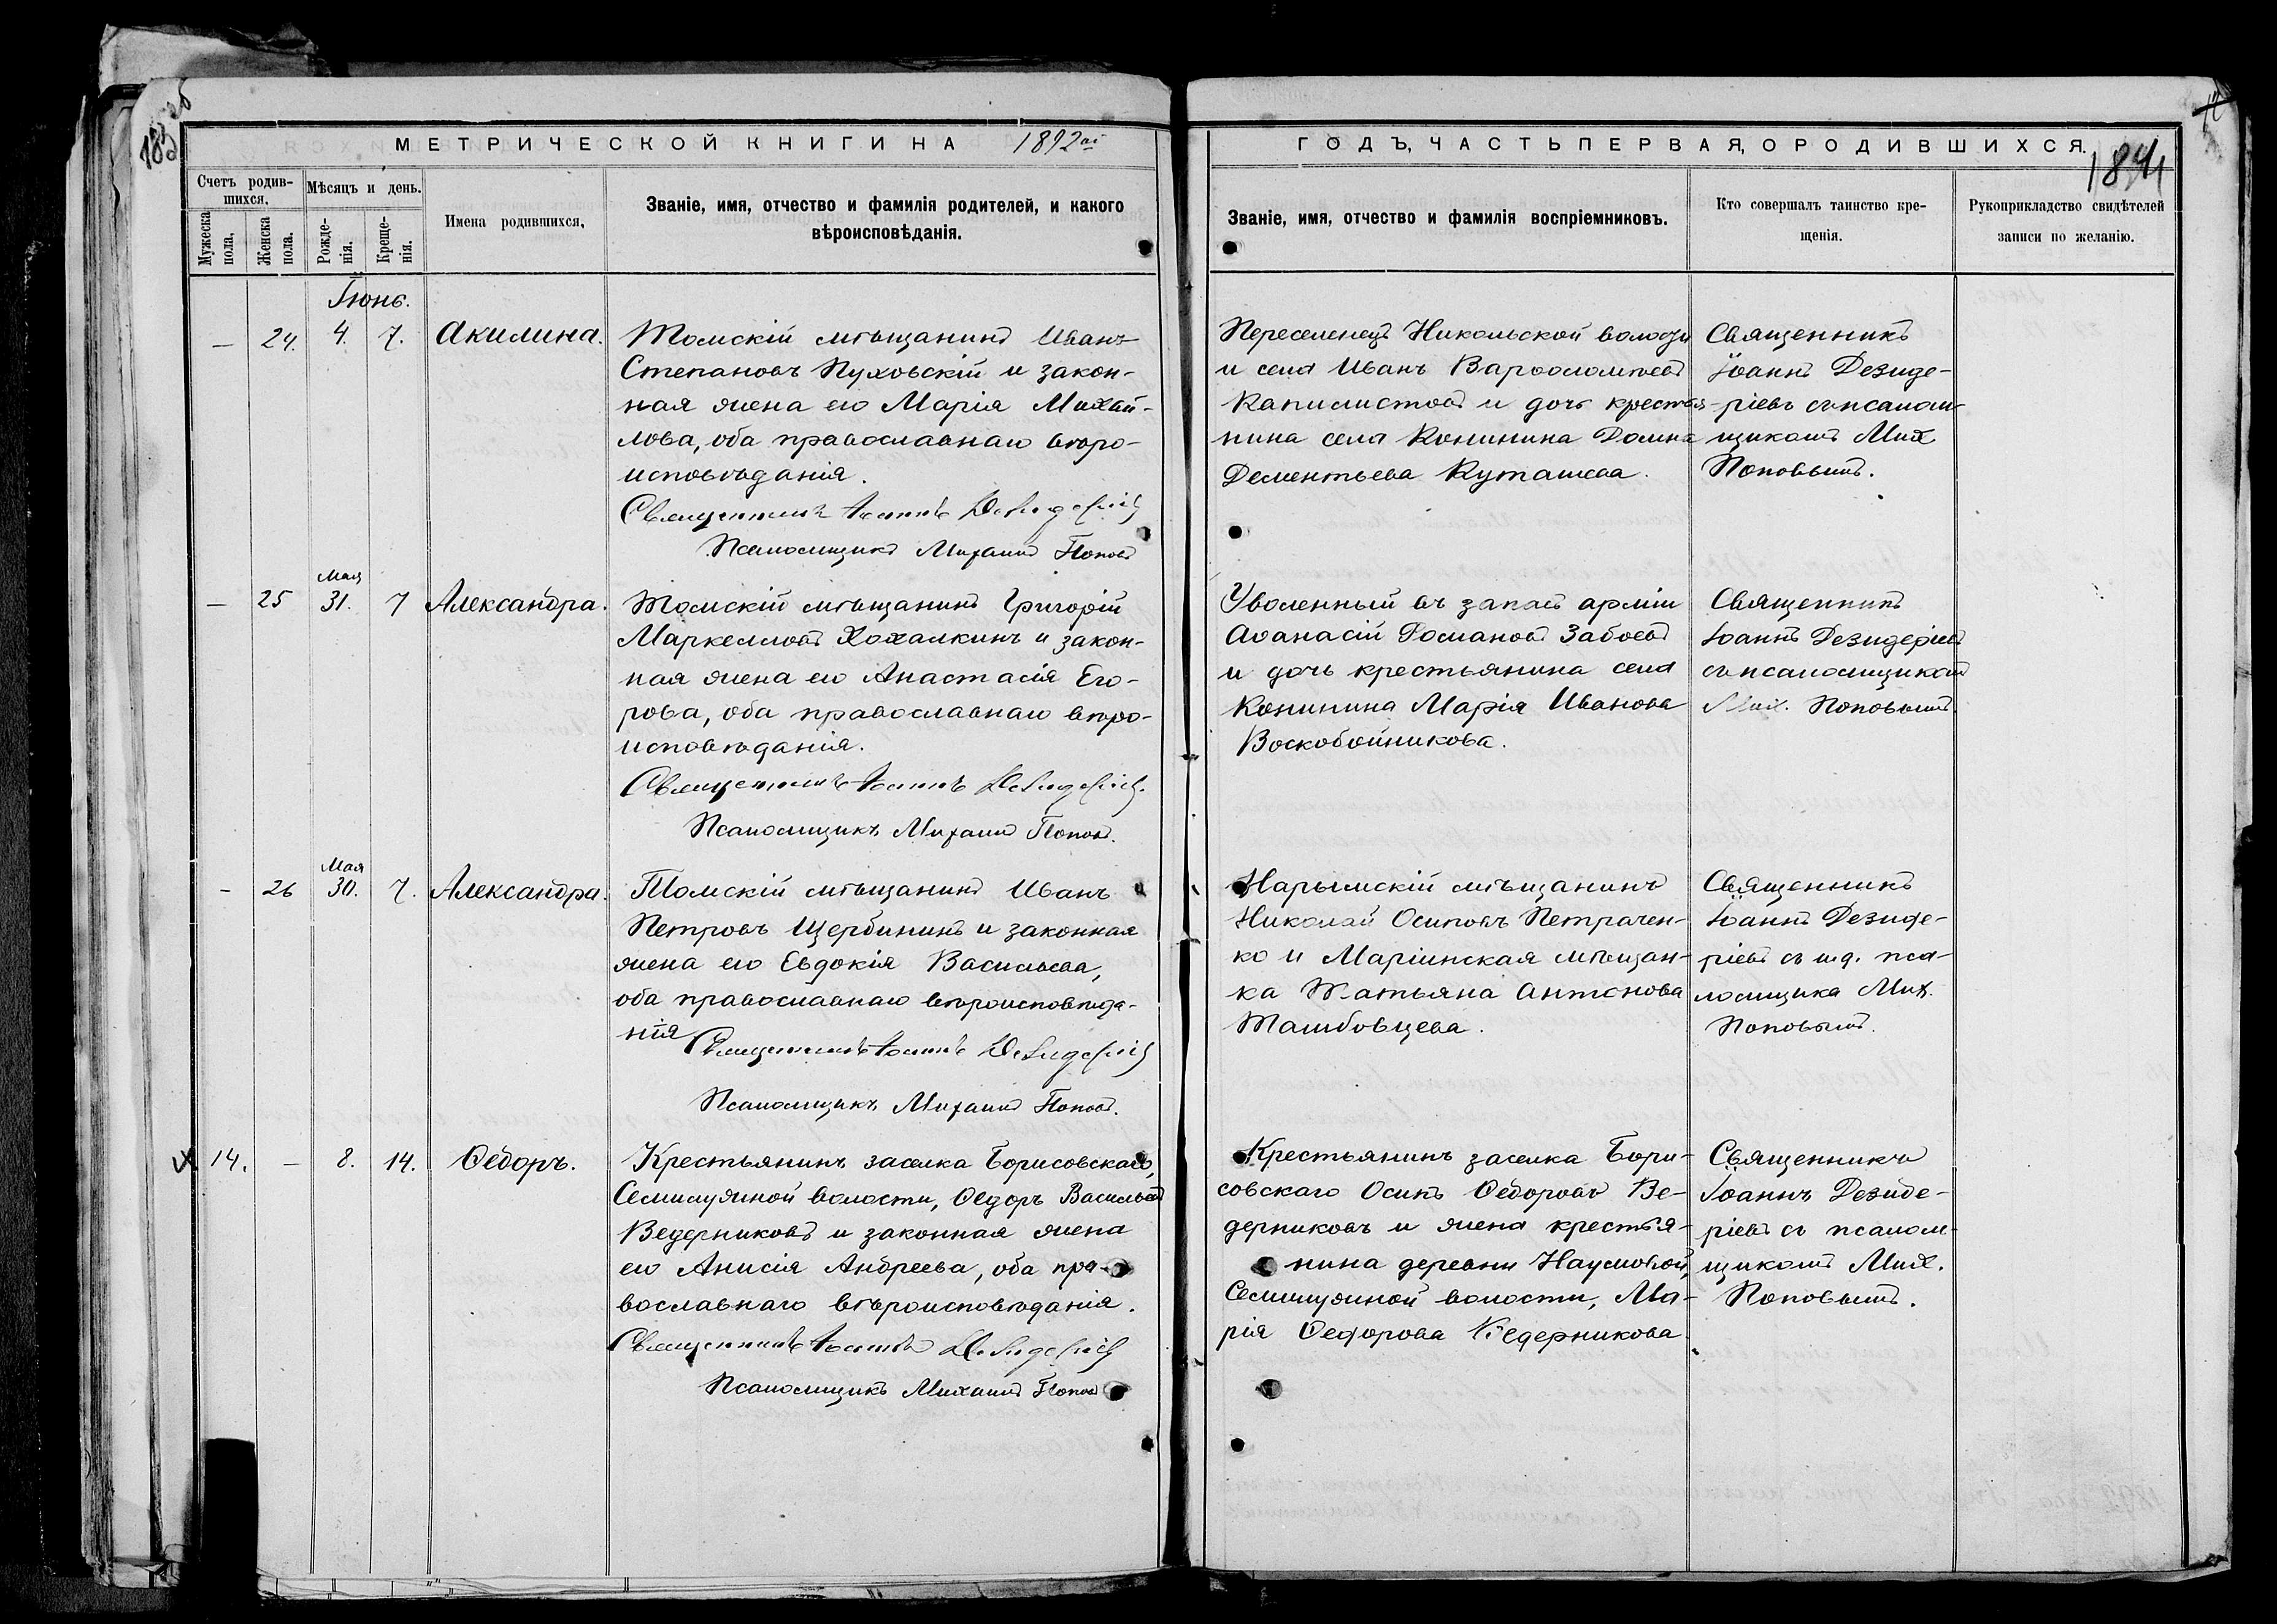 МЕТРИЧЕСКОЙ КНИГИ НА 1892ой
ГОДЪ, ЧАСТЬ ПЕРВАЯ, О РОДИВШИХСЯ.
184
Счетъ родив-
шихся.
Мужеска пола.
Женска пола.
Мѣсяцъ и день.
Рожде-
нія.
Креще-
нія.
Имена родившихся.
Званіе, имя, отчество и фамилія родителей, и какого
вѣроисповѣданія.
Званіе, имя, отчество и фамилія воспріемниковъ.
Кто совершалъ таинство кре-
щенія.
Рукоприкладство свидѣтелей
записи по желанію.
Іюнь.
— 24. 4. 7. Акилина.
Томскій мѣщанинъ Иванъ
Степановъ Пуховскій и закон-
ная жена его Марія Михай-
лова, оба православнаго вѣро-
исповѣданія.
Священникъ Іоаннъ Дезидеріевъ
Псаломщикъ Михаилъ Поповъ
Переселенецъ Никольской волости
и села Иванъ Варѳоломѣевъ
Капилистовъ и дочь крестья-
нина села Конинина Домна
Дементьева Куташева.
Священникъ
Іоаннъ Дезиде-
ріевъ съ псалом-
щикомъ Мих.
Поповымъ.
— 25 Мая 31. 7 Александра.
Томскій мѣщанинъ Григорій
Маркелловъ Хохалкинъ и закон-
ная жена его Анастасія Его-
рова, оба православнаго вѣро-
исповѣданія.
Священникъ Іоаннъ Дезидеріевъ.
Псаломщикъ Михаилъ Поповъ.
Уволенный въ запасъ арміи
Аѳанасій Романовъ Забоевъ
и дочь крестьянина села
Конинина Марія Иванова
Воскобойникова.
Священникъ
Іоаннъ Дезидеріевъ
съ псаломщикомъ
Мих. Поповымъ.
— 26 Мая 30. 7. Александра.
Томскій мѣщанинъ Иванъ
Петровъ Щербининъ и законная
жена его Евдокія Васильева,
оба православнаго вѣроисповѣда-
нія
Священникъ Іоаннъ Дезидеріевъ
Псаломщикъ Михаилъ Поповъ.
Нарымскій мѣщанинъ
Николай Осиповъ Петрачен-
ко и Маріинская мѣщан-
ка Татьяна Антонова
Ташбовцева.
Священникъ
Іоаннъ Дезиде-
ріевъ съ и.д. пса-
ломщика Мих.
Поповымъ.
14. — 8. 14. Ѳедоръ.
Крестьянинъ заселка Борисовскаго,
Семилужной волости, Ѳедоръ Васильевъ
Ведерниковъ и законная жена
его Анисія Андреева, оба пра-
вославнаго вѣроисповѣданія.
Священникъ Іоаннъ Дезидеріевъ
Псаломщикъ Михаилъ Поповъ
Крестьянинъ заселка Бори-
совскаго Осипъ Ѳедоровъ Ве-
дерниковъ и жена крестья-
нина деревни Наумовой,
Семилужной волости, Ма-
рія Ѳедорова Ведерникова.
Священникъ
Іоаннъ Дезиде-
ріевъ съ псалом-
щикомъ Мих.
Поповымъ.